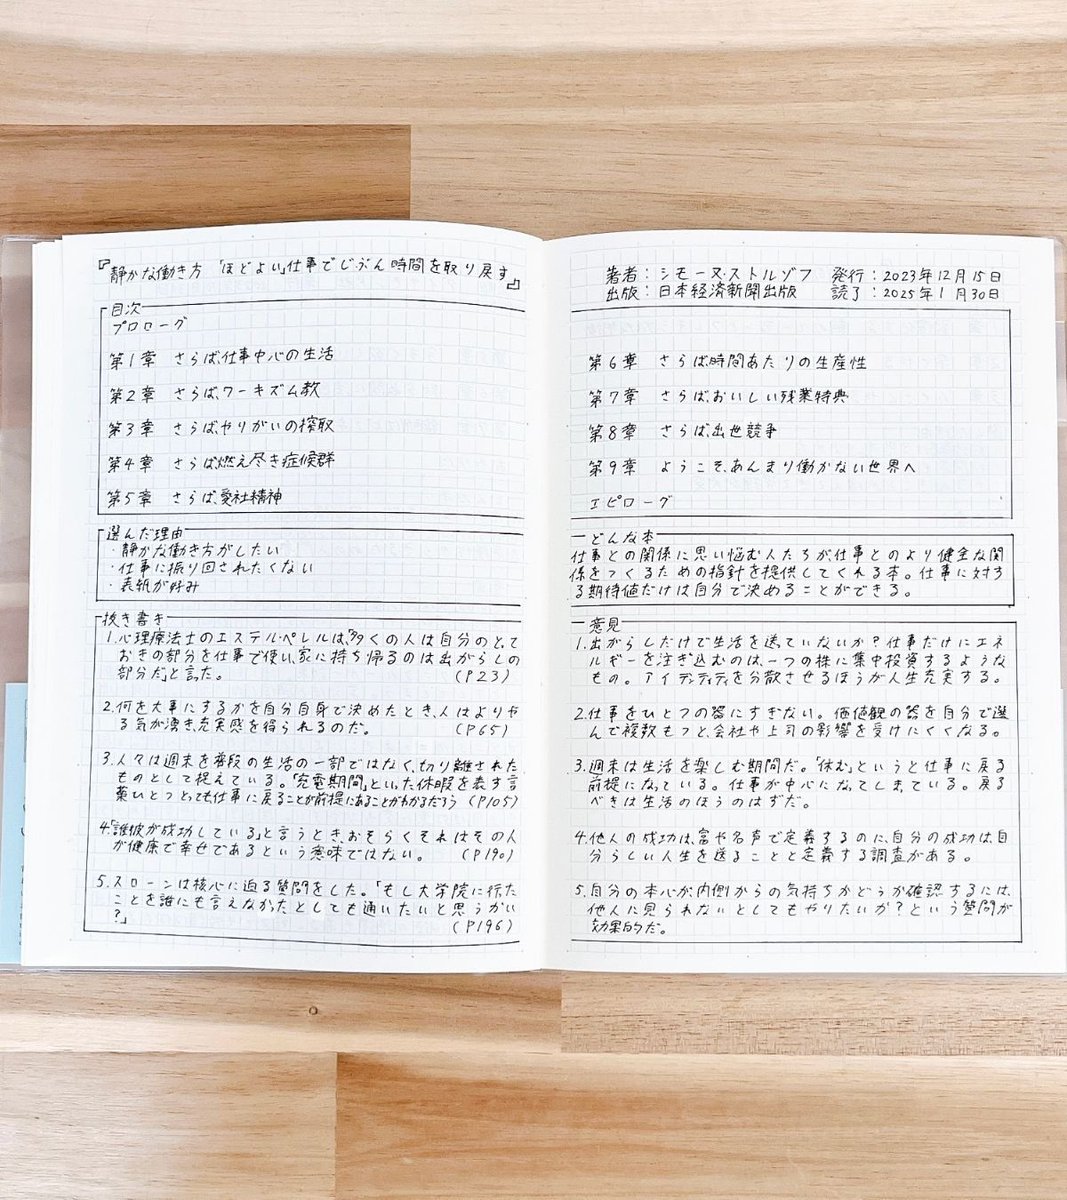 『静かな働き方 「ほどよい」仕事でじぶん時間を取り戻す』
目次
プロローグ
第1章 さらば、仕事中心の生活
第2章 さらば、ワーキズム教
第3章 さらば、やりがいの搾取
第4章 さらば、燃え尽き症候群
第5章 さらば、愛社精神
選んだ理由
・静かな働き方がしたい
・仕事に振り回されたくない
・表紙が好み
抜き書き
1.心理療法士のエステル・ペレルは、「多くの人は自分のとって
おきの部分を仕事で使い、家に持ち帰るのは出がらしの
部分だ」と言った。 (P23)
2.何を大事にするかを自分自身で決めたとき、人はよりや
る気が湧き、充実感を得られるのだ。 (P65)
3.人々は週末を普段の生活の一部ではなく、切り離された
ものとして捉えている。「充電期間」といった休暇を表す言
葉ひとつとっても仕事に戻ることが前提にあることがわかるだろう (P105)
4.「誰彼が成功している」と言うとき、おそらくそれはその人
が健康で幸せであるという意味ではない。 (P190)
5.スローンは核心に迫る質問をした。「もし大学院に行った
ことを誰にも言えなかったとしても通いたいと思うかい
?」 (P196)
著者：シモーヌ・ストルゾフ 発行：2023年12月15日
出版：日本経済新聞出版 読了：2025年1月30日
第6章 さらば、時間あたりの生産性
第7章 さらば、おいしい残業特典
第8章 さらば、出世競争
第9章 ようこそ、あんまり働かない世界へ
エピローグ
どんな本
仕事との関係に思い悩む人たちが仕事とのより健全な関
係をつくるための指針を提供してくれる本。仕事に対す
る期待値だけは自分で決めることができる。
意見
1.出がらしだけで生活を送っていないか?仕事だけにエネ
ルギーを注ぎ込むのは、一つの株に集中投資するような
もの。アイデンティティを分散させるほうが人生充実する。
2.仕事をひとつの器にすぎない。価値観の器を自分で選
んで複数もつと、会社や上司の影響を受けにくくなる。
3.週末は生活を楽しむ期間だ。「休む」というと仕事に戻る
前提になっている。仕事が中心になってしまっている。戻る
べきは生活のほうのはずだ。
4.他人の成功は、富や名声で定義するのに、自分の成功は、自
分らしい人生を送ることと定義する調査がある。
5.自分の本心が内側からの気持ちかどうか確認するには、
他人に見られないとしてもやりたいか?という質問が
効果的だ。